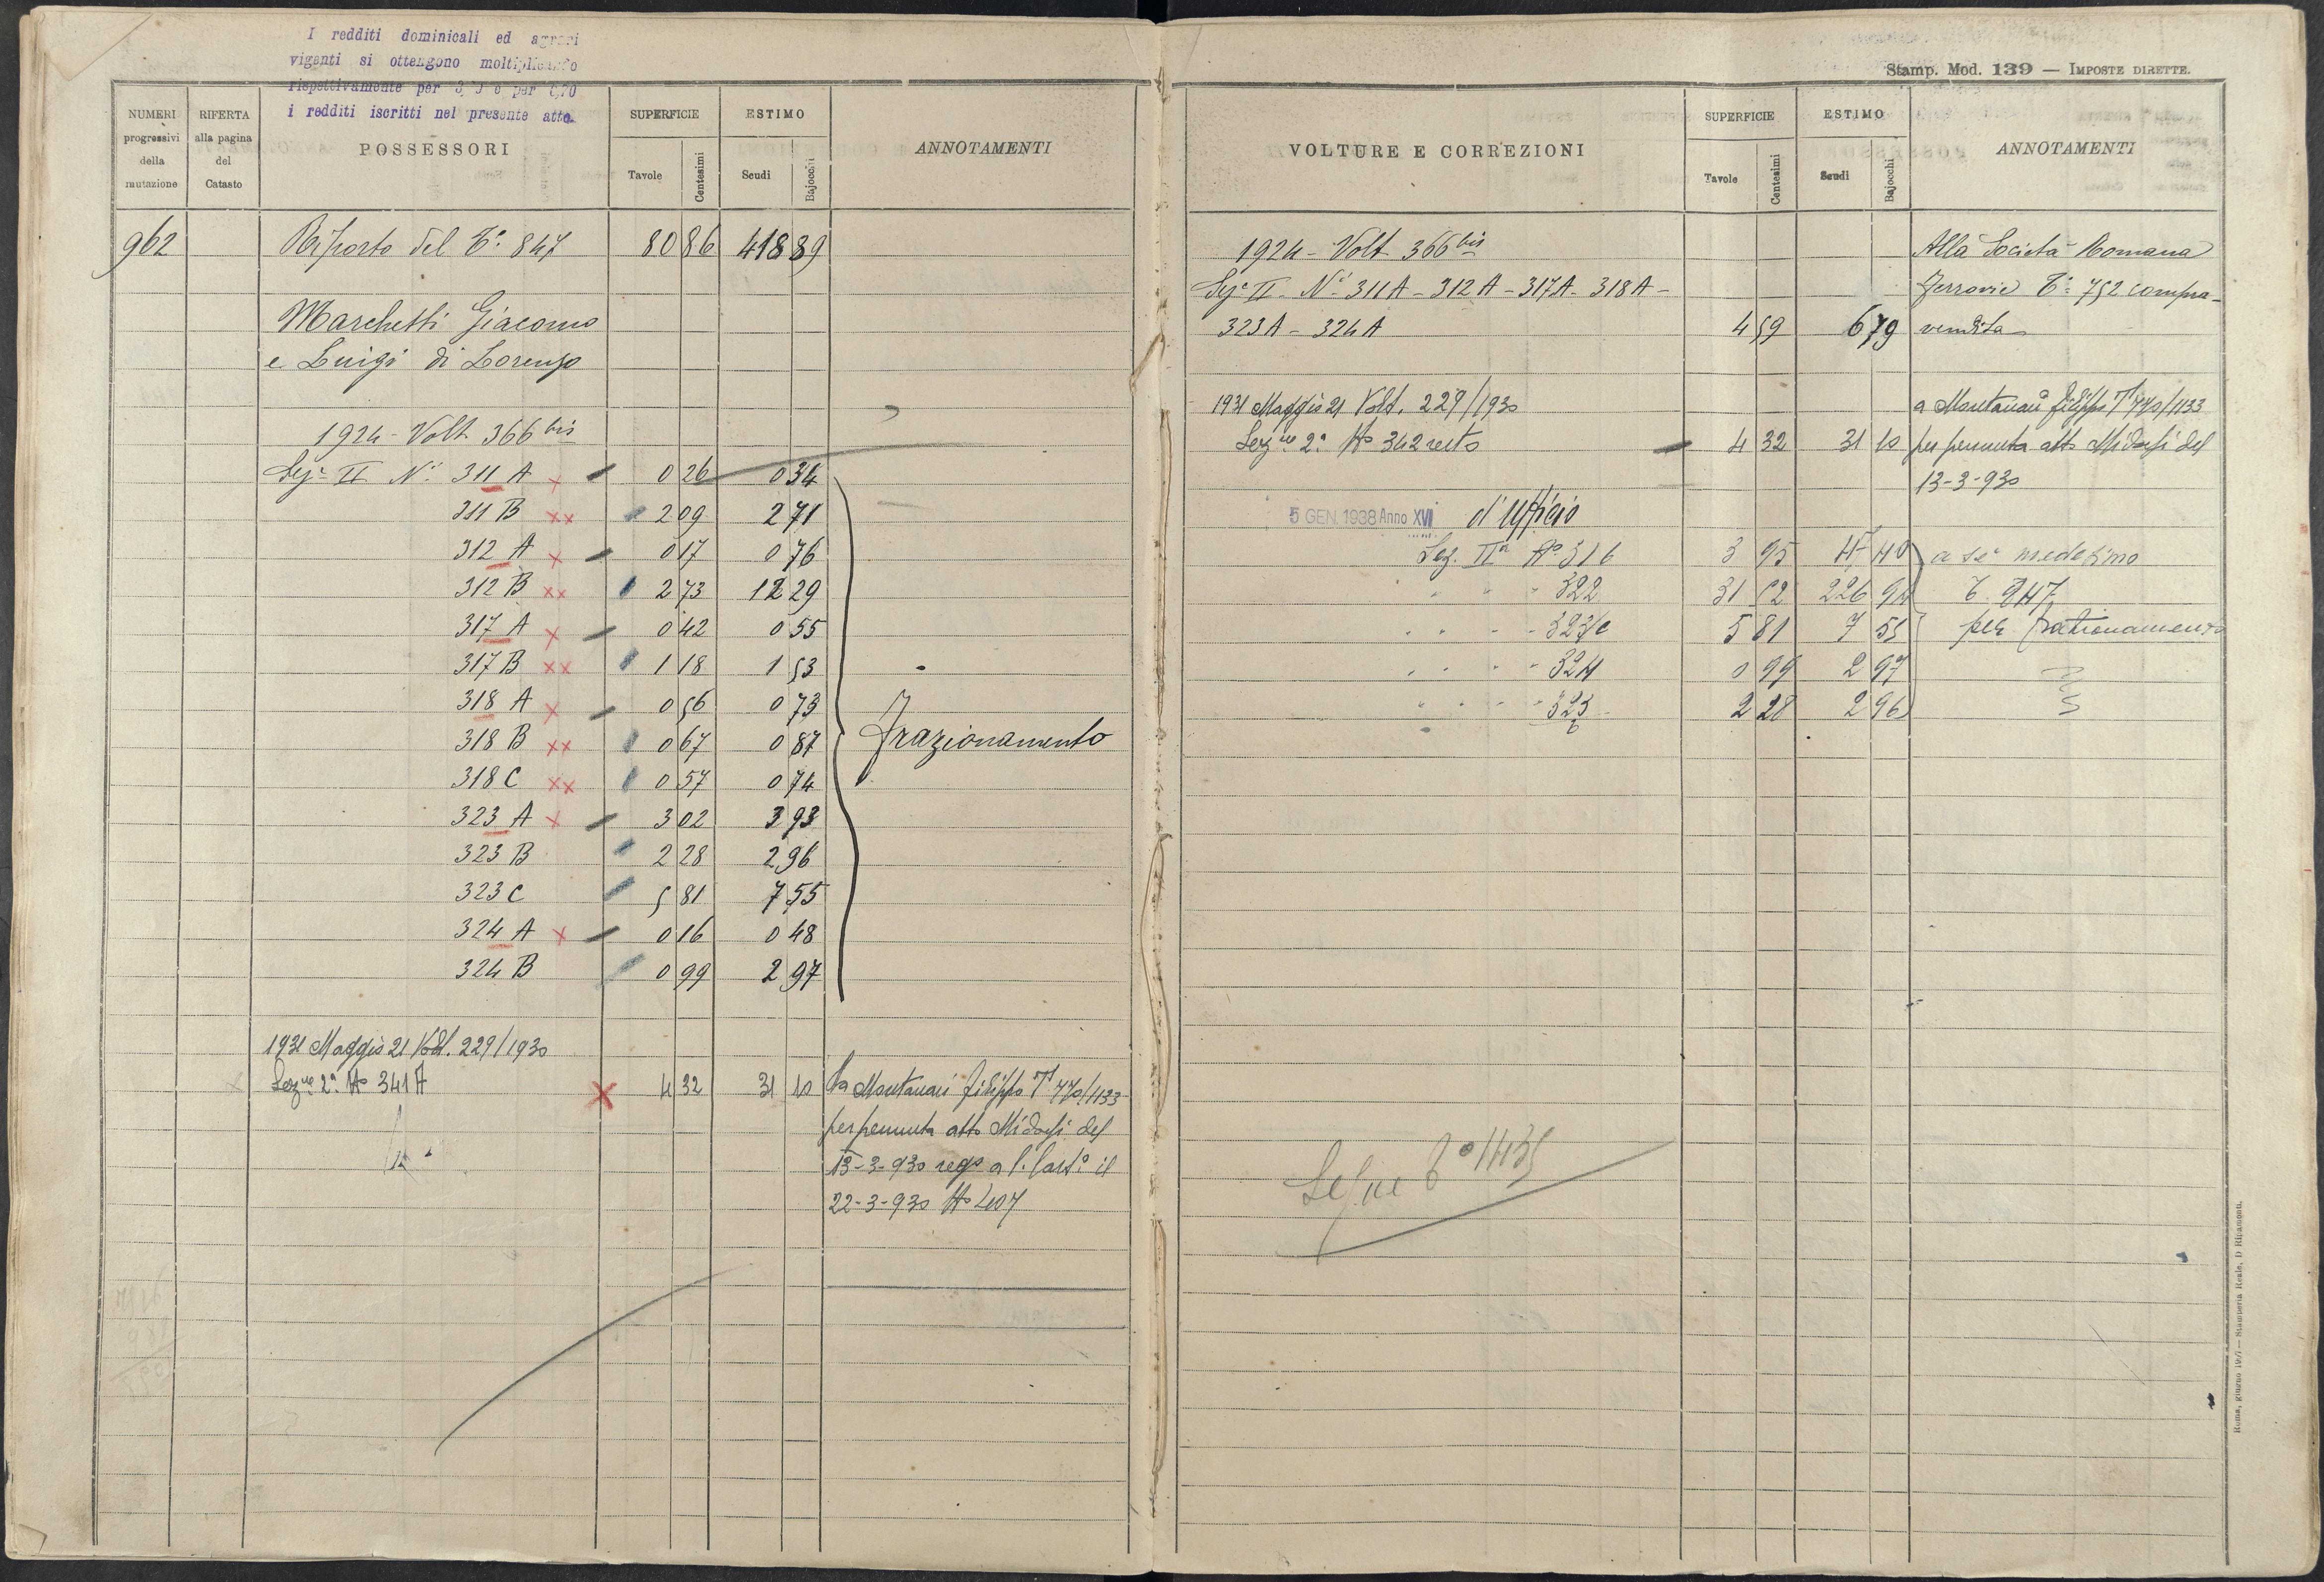 I redditi dominicali ed agrari
vigenti si ottengono moltiplicando
rispettivamente per
i redditi iscritti nel presente atto.
NUMERI progressivi della mutazione
RIFERTA alla pagina del Catasto
POSSESSORI
SUPERFICIE
Tavole Centesimi
ESTIMO
Scudi Bajocchi
ANNOTAMENTI
962 Riporto del T° 847 80 86 418 89
Marchetti Giacomo
e Luigi di Lorenzo
1924 - Volt 366 bis
Sez. II N. 311 A x 0 26 0 34
311 B xx 2 09 2 71
312 A x 0 17 0 76
312 B xx 2 73 12 29
317 A x 0 42 0 55
317 B xx 1 18 1 53
318 A x 0 56 0 73
318 B xx 0 67 0 87 frazionamento
318 C xx 0 57 0 74
323 A x 3 02 3 93
323 B 2 28 2 96
323 C 5 81 7 55
324 A x 0 16 0 48
324 B 0 99 2 97
1931 Maggio 21 Volt. 229/1930
Sezne 2a No 341 A x 4 32 31 10 Da Montanari Filippo T 770/1133
per permuta atto del
13-3-930 rego a il
22-3-930 No
Stamp. Mod. 139 — IMPOSTE DIRETTE.
VOLTURE E CORREZIONI
SUPERFICIE
Tavole Centesimi
ESTIMO
Scudi Bajocchi
ANNOTAMENTI
1924 - Volt 366 bis Alla Società Romana
Sez. II - N. 311 A - 312 A - 317 A - 318 A - Ferrovie T° 752 compra-
323 A - 324 A 4 59 6 79 vendita
1931 Maggio 21 Volt. 229/1930 a Montanari Filippo T 770/1133
Sezne 2a No 342 resto 4 32 31 10 per permuta atto del
13-3-930
5 GEN. 1938 Anno XVI d'Ufficio
Sez. IIa No 316 3 95 40 a se medesimo
" " " 322 31 226 94 T. 947
" " " 323/c 5 81 7 55 per frazionamento
" " " 324 0 99 2 97
" " " 323 b 2 28 2 96
Segue T° 1435
Roma, giugno — Stamperia Reale, D Ripamonti.